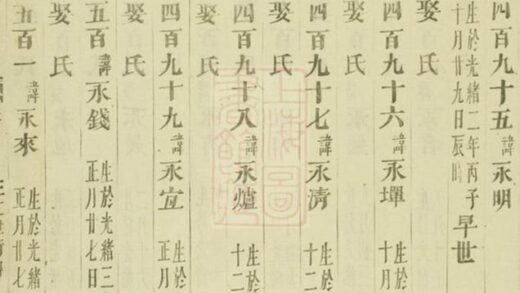 四百九十五諱永明
生於光緒二年丙子
十月廿九日辰時
早世
娶 氏
四百九十六諱永墠
生於
十月
娶 氏
四百九十七諱永清
生於
十二
娶 氏
四百九十八諱永爐
生於
十二
娶 氏
四百九十九諱永宜
生於
正月
娶 氏
五百諱永錢
生於光緒三
正月廿七日
娶 氏
五百一諱永來
生於光緒
正月廿七